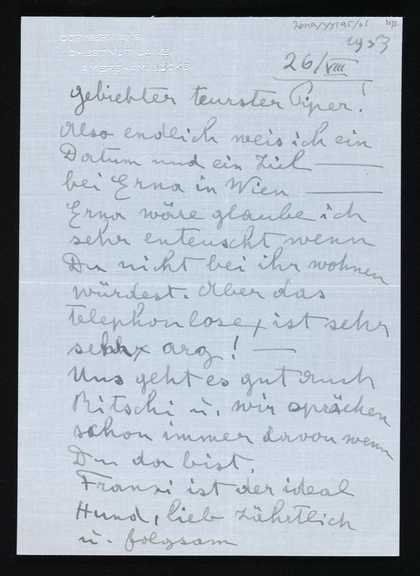 1953
26/VIII
geliebter teurster Piper!
Also endlich weis ich ein
Datum und ein Ziel —
bei Erna in Wien —
Erna wäre glaube ich
sehr enteuscht wenn
Du nicht bei ihr wohnen
würdest. Aber das
telephonlose x ist sehr
sehr x arg! —
Uns geht es gut auch
Ritschi u. wir sprächen
schon immer davon wenn
Du da bist.
Franzi ist der ideal
Hund, lieb zährtlich
u. folgsam